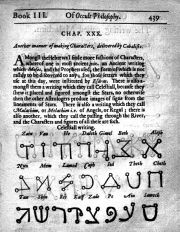 Book III. Of Occult Philosophy. 439
CHAP. XXX.
Another manner of making Characters, delivered by Cabalists.
Amongst the Hebrews I finde more fashions of Characters,
whereof one is most ancient, viz. an Ancient writing
which Moses, and the Prophets used, the form of which is not
rashly to be discovered to any; for those letters which they
use at this day, were instituted by Esdras. There is
amongst them a writing which they call Celestiall, because they
shew it placed and figured amongst the Stars, no otherwise
then the other Astrologers produce images of signs from the
lineaments of Stars. There is also a writing which they call
Malachim, or Melachim i.e. of Angels, or Regal; there is
also another, which they call the passing through the River,
and the Characters and figures of all these are such.
Celestiall writing.
Zain Vau He Daleth Gimel Beth Aleph
Nun Mem Lamed Caph Iod Theth Cheth
Kuff Zade Pe Ain Samech